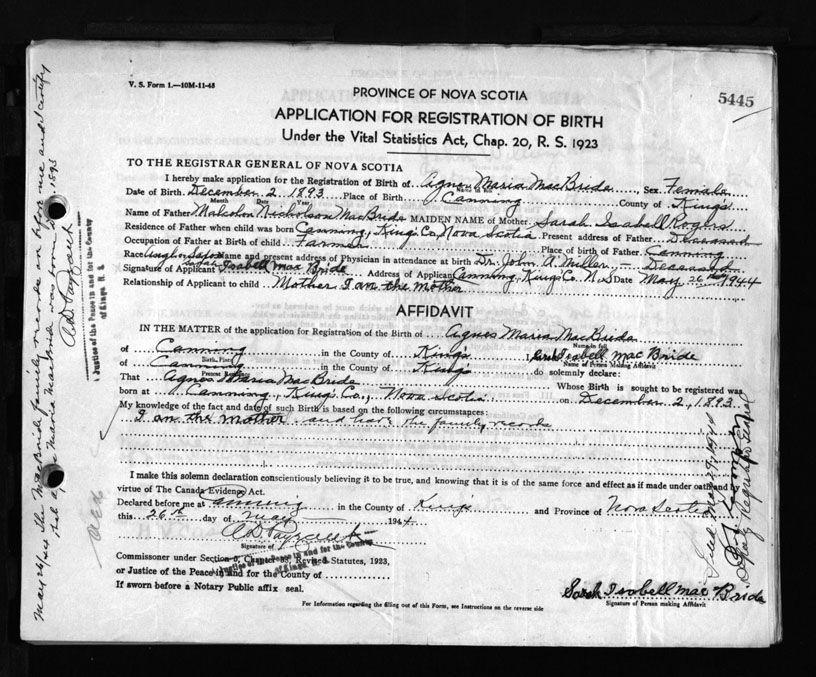 V. S. Form 1.—10M-11-43
5445
PROVINCE OF NOVA SCOTIA
APPLICATION FOR REGISTRATION OF BIRTH
Under the Vital Statistics Act, Chap. 20, R. S. 1923
TO THE REGISTRAR GENERAL OF NOVA SCOTIA
I hereby make application for the Registration of Birth of Agnes Maria MacBride, Sex Female
Date of Birth December 2 1893 Place of Birth Canning County of King's
Month Date Year
Name of Father Malcolm Nicholson MacBride MAIDEN NAME of Mother Sarah Isabell Rogers
Residence of Father when child was born Canning, King's Co, Nova Scotia Present address of Father Deceased
Occupation of Father at Birth of child Farmer Place of birth of Father Canning
Race Anglo Saxon Name and present address of Physician in attendance at birth Dr. John A. Miller — Deceased
Signature of Applicant Sarah Isabell Mac Bride Address of Applicant Canning, King's Co. N.S Date May 26th 1944
Relationship of Applicant to child Mother I am the mother
AFFIDAVIT
IN THE MATTER of the application for Registration of the Birth of Agnes Maria MacBride
Name in full
of Canning in the County of King's I, Sarah Isobell Mac Bride
Birth Place Name of Person Making Affidavit
of Canning in the County of King's do solemnly declare:
Present Residence
That Agnes Maria MacBride Whose Birth is sought to be registered was
born at Canning, King's Co., Nova Scotia on December 2, 1893
My knowledge of the fact and date of such Birth is based on the following circumstances:
I am the mother and have the family records
I make this solemn declaration conscientiously believing it to be true, and knowing that it is of the same force and effect as if made under oath and by
virtue of The Canada Evidence Act.
Declared before me at Canning in the County of King's and Province of Nova Scotia
this 26th day of May 1944
Signature of
Justice of the Peace in and for the County of Kings N. S.
Commissioner under Section 5, Chapter 35, Revised Statutes, 1923,
or Justice of the Peace in and for the County of
If sworn before a Notary Public affix seal.
Sarah Isobell Mac Bride
Signature of Person making Affidavit
For Information regarding the filling out of this Form, see Instructions on the reverse side
May 26/44 the MacBride family records on before me and I certify
that Agnes Maria MacBride was born Dec 2 1893
Justice of the Peace in and for the County
of Kings N. S.